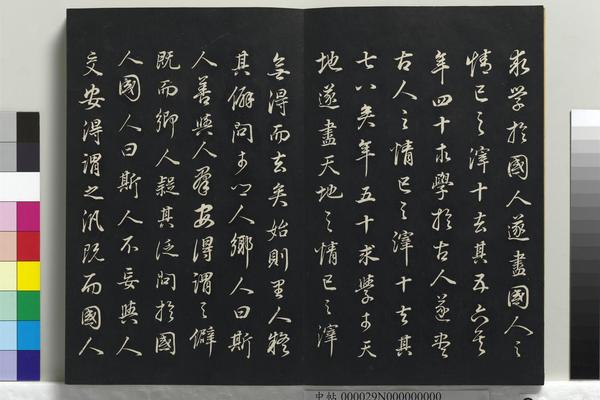 求學於國人遂盡國人之
情已之滓十去其五六矣
年四十求學於古人遂盡
古人之情已之滓十去其
七八矣年五十求學于天
地遂盡天地之情已之滓
無得而去矣始則里人疑
其僻問于鄉人鄉人曰斯
人善與人羣安得謂之僻
既而鄉人疑其泛問於國
人國人曰斯人不妄與人
交安得謂之汎既而國人
中帖 000029N000000000